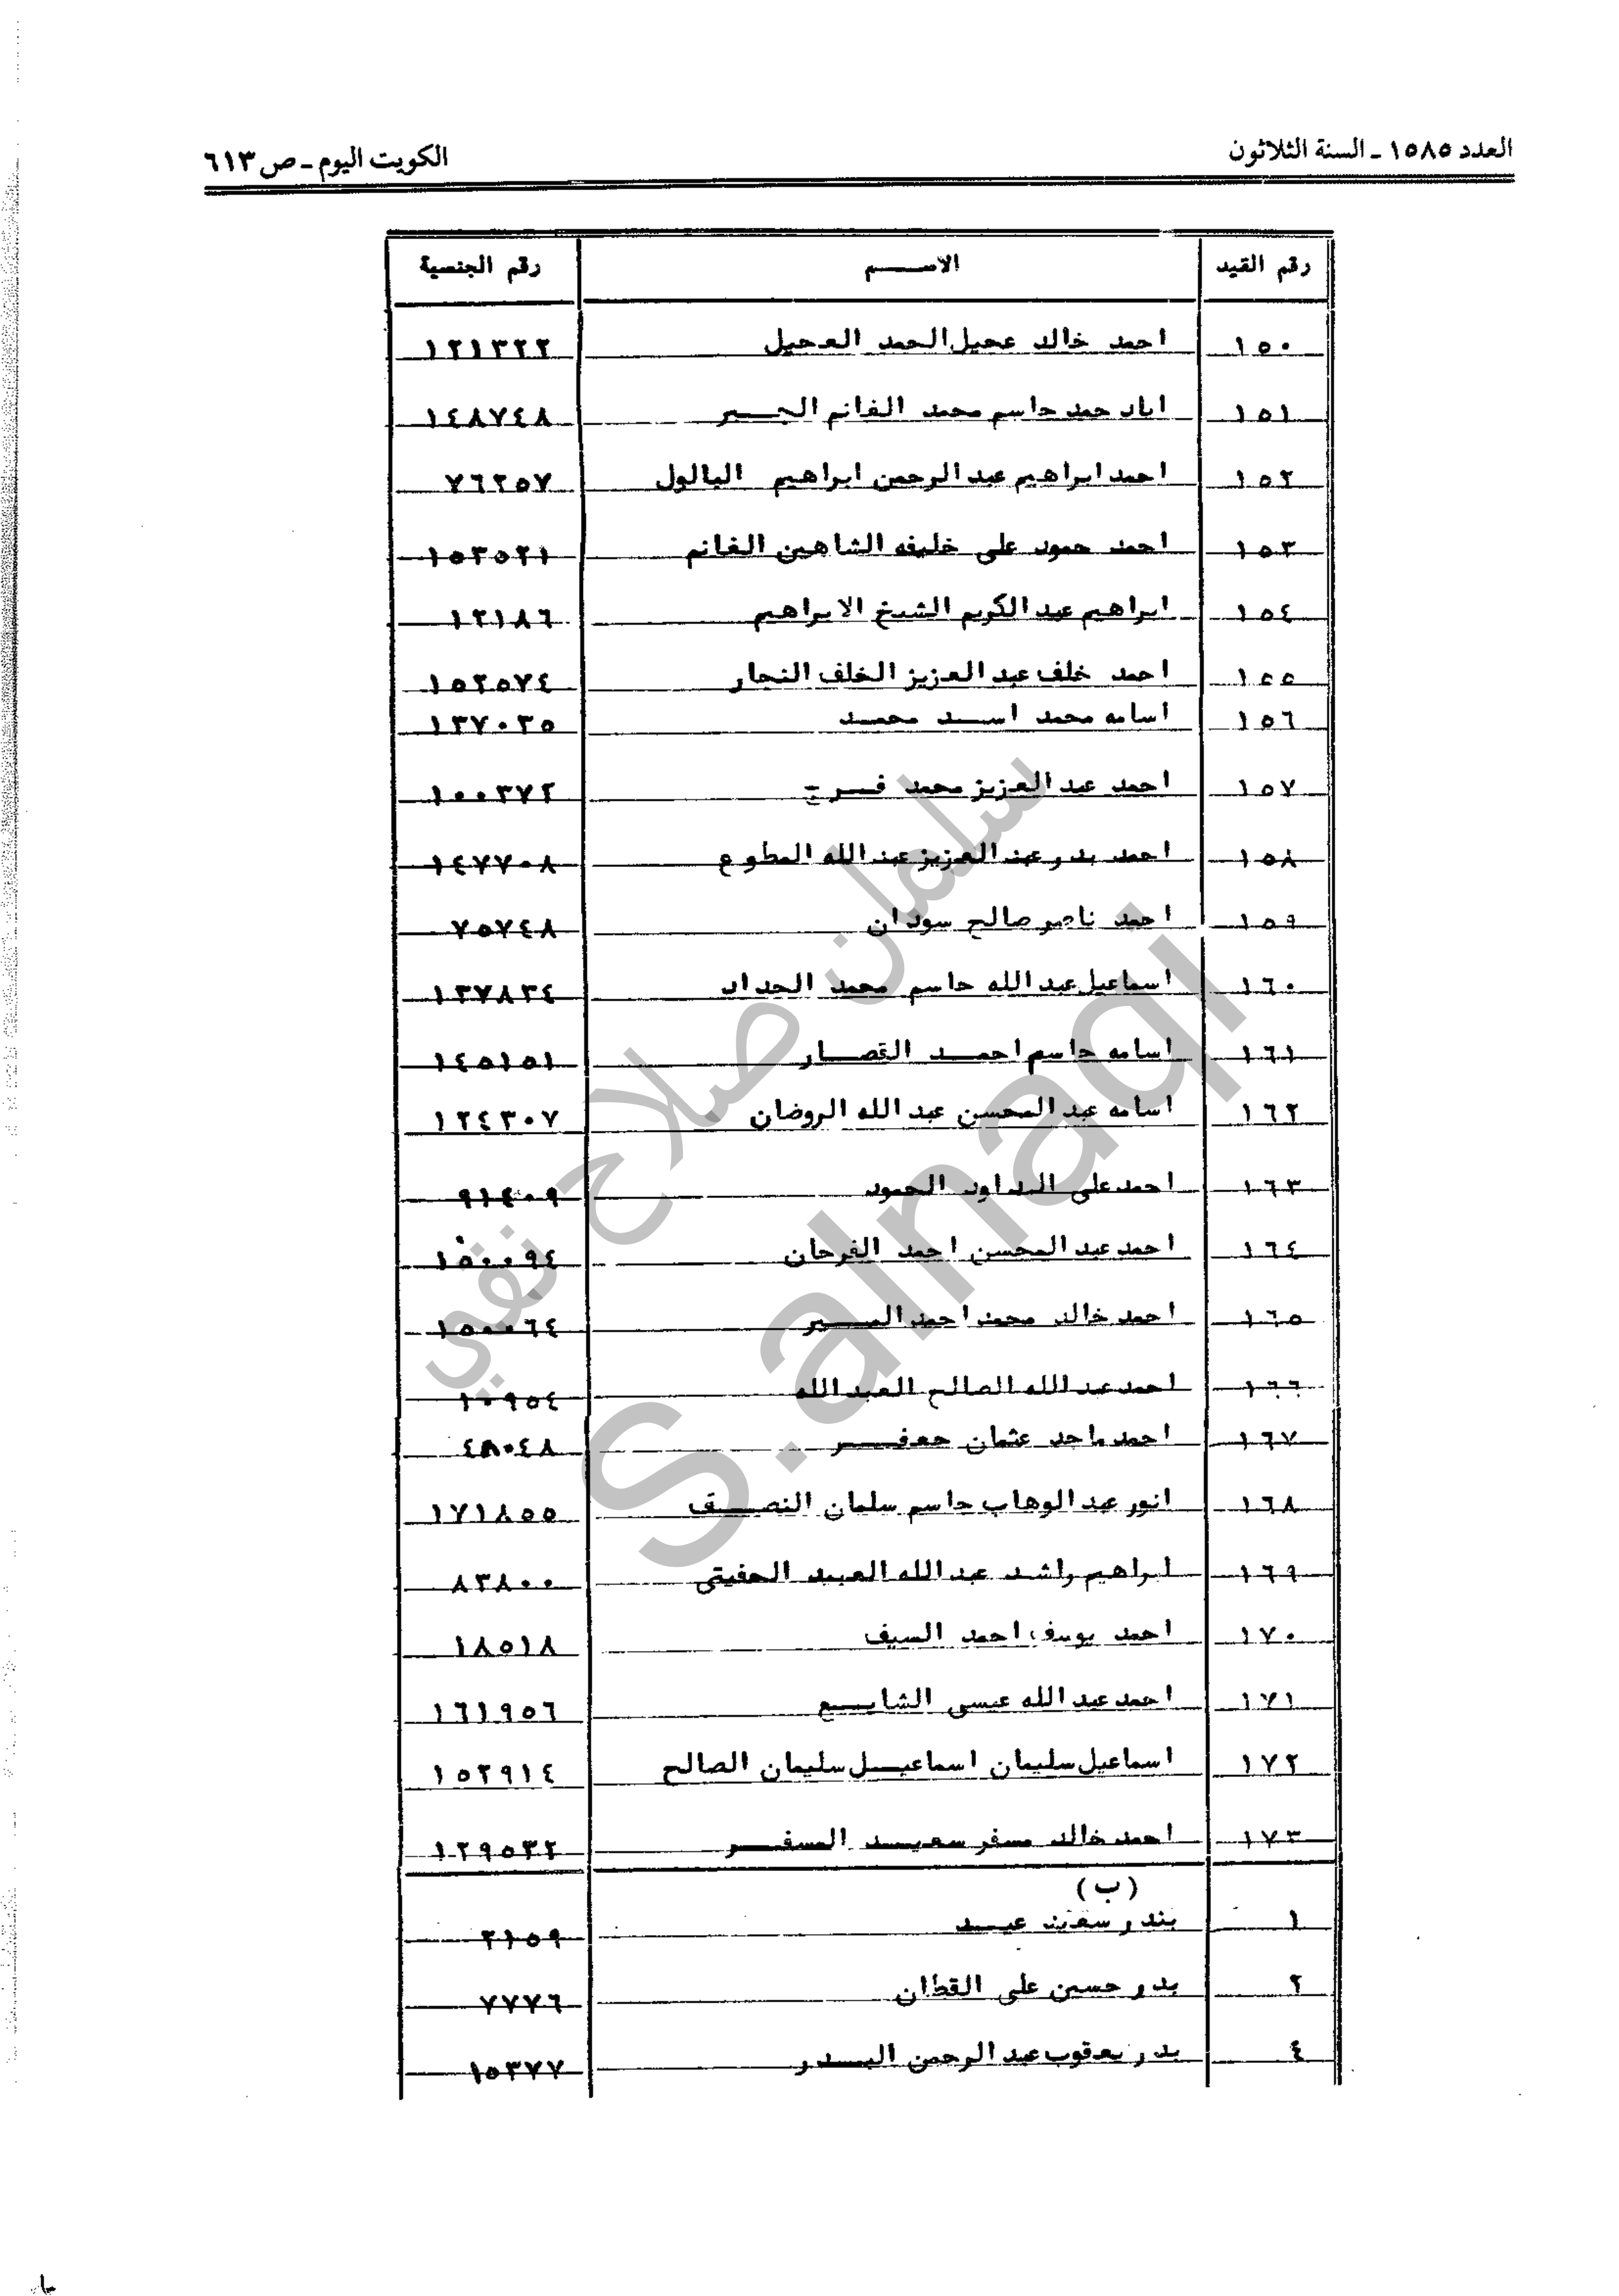 العدد ١٥٨٥ ـ السنة الثلاثون
الكويت اليوم ـ ص ٦١٣
رقم القيد الاســـم رقم الجنسية
١٥٠ احمد خالد عجيل الحمد العجيل ١٢١٣٢٢
١٥١ اياد حمد جاسم محمد الغانم الجبر ١٤٨٧٤٨
١٥٢ احمد ابراهيم عبد الرحمن ابراهيم البالول ٧٦٢٥٧
١٥٣ احمد حمود على خليفه الشاهين الغانم ١٥٣٥٢١
١٥٤ ابراهيم عبد الكريم الشيخ الابراهيم ١٢١٨٦
١٥٥ احمد خلف عبد العزيز الخلف النجار ١٥٢٥٧٤
١٥٦ اسامه محمد اســد محمـد ١٣٧٠٣٥
١٥٧ احمد عبد العزيز محمد فـــرج ١٠٠٣٧٢
١٥٨ احمد بدر عبد العزيز عبد الله المطوع ١٤٧٧٠٨
١٥٩ احمد ناصر صالح سودان ٧٥٧٤٨
١٦٠ اسماعيل عبد الله جاسم محمد الحداد ١٣٧٨٣٤
١٦١ اسامه جاسم احمــد القصــار ١٤٥١٥١
١٦٢ اسامه عبد المحسن عبد الله الروضان ١٢٤٣٠٧
١٦٣ احمد على الداود الحمود ٩١٤٠٩
١٦٤ احمد عبد المحسن احمد الفرحان ١٥٠٠٩٤
١٦٥ احمد خالد محمد احمد ١٥٠٠٦٤
١٦٦ احمد عبد الله الصالح العبد الله ١٠٩٥٤
١٦٧ احمد ماجد عثمان جعفـــر ٤٨٠٤٨
١٦٨ انور عبد الوهاب جاسم سلمان النصــف ١٧١٨٥٥
١٦٩ ابراهيم راشد عبد الله العبيد الحفيتى ٨٣٨٠٠
١٧٠ احمد يوسف احمد السيف ١٨٥١٨
١٧١ احمد عبد الله عيسى الشايــع ١٦١٩٥٦
١٧٢ اسماعيل سليمان اسماعيــل سليمان الصالح ١٥٢٩١٤
١٧٣ احمد خالد مسفر سعيــد المسفـــر ١٢٩٥٣٢
(ب)
١ بندر سعيد عيــد ٢١٥٩
٢ بدر حسين على القطان ٧٧٧٦
٤ بدر يعقوب عبد الرحمن البــدر ١٥٣٧٧
سلمان صلاح نقي
S.alnaqi